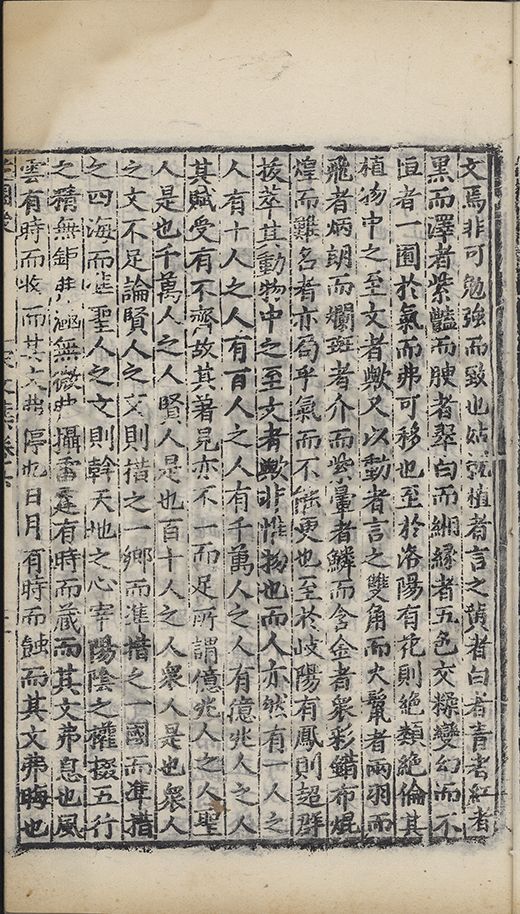 文焉非可勉強而致也姑就植者言之黃者白者青者紅者
黑而澤者紫豔而腴者翠白而緗緣者五色交糅變幻而不
恒者一囿於氣而弗可移也至於洛陽有花則絶類絶倫其
植物中之至文者歟又以動者言之雙角而火鬣者兩羽而
飛者炳朗而爛斑者介而紫暈者鱗而含金者衆彩錯布焜
煌而難名者亦局乎氣而不能更也至於岐陽有鳳則超群
拔萃其動物中之至文者歟非惟物也而人亦然有一人之
人有十人之人有百人之人有千萬人之人有億兆人之人
其賦受有不齊故其著見亦不一而足所謂億兆人之人聖
人是也千萬人之人賢人是也百十人之人衆人是也衆人
之文不足論賢人之文則措之一鄉而準措之一國而準措
之四海而準聖人之文則斡天地之心宰陽陰之權掇五行
之精無鉅弗涵無微弗攝雷霆有時而藏而其文弗息也風
雲有時而收而其文弗停也日月有時而蝕而其文弗晦也